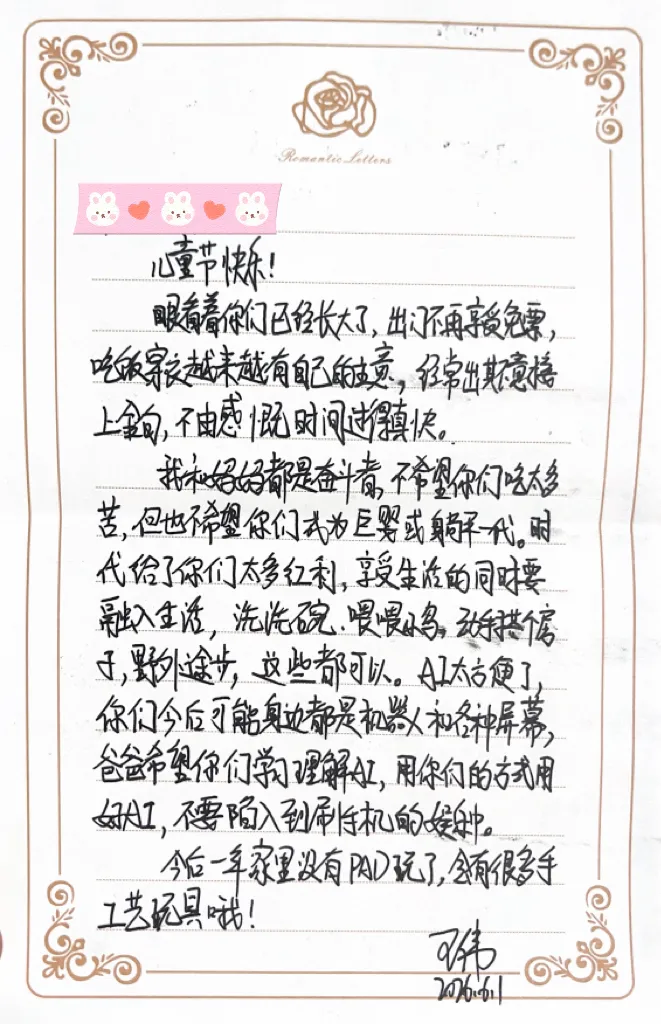 Romantic Letters
儿童节快乐!
眼看着你们已经长大了,出门不再享受免票,
吃饭穿衣越来越有自己的主意,经常出其不意接
上金句,不由感慨时间过得真快。
我和妈妈都是奋斗者,不希望你们吃太多
苦,但也不希望你们成为巨婴或躺平一代。时
代给了你们太多红利,享受生活的同时要
融入生活,洗洗碗、喂喂小鸟,动手拱个房
子,野外途步,这些都可以。AI太方便了,
你们今后可能身边都是机器人和各种屏幕,
爸爸希望你们学习理解AI,用你们的方式用
好AI,不要陷入到刷手机的。
今后一年家里没有PAD玩了,会有很多手
工艺玩具哦!
王伟
2026.6.1